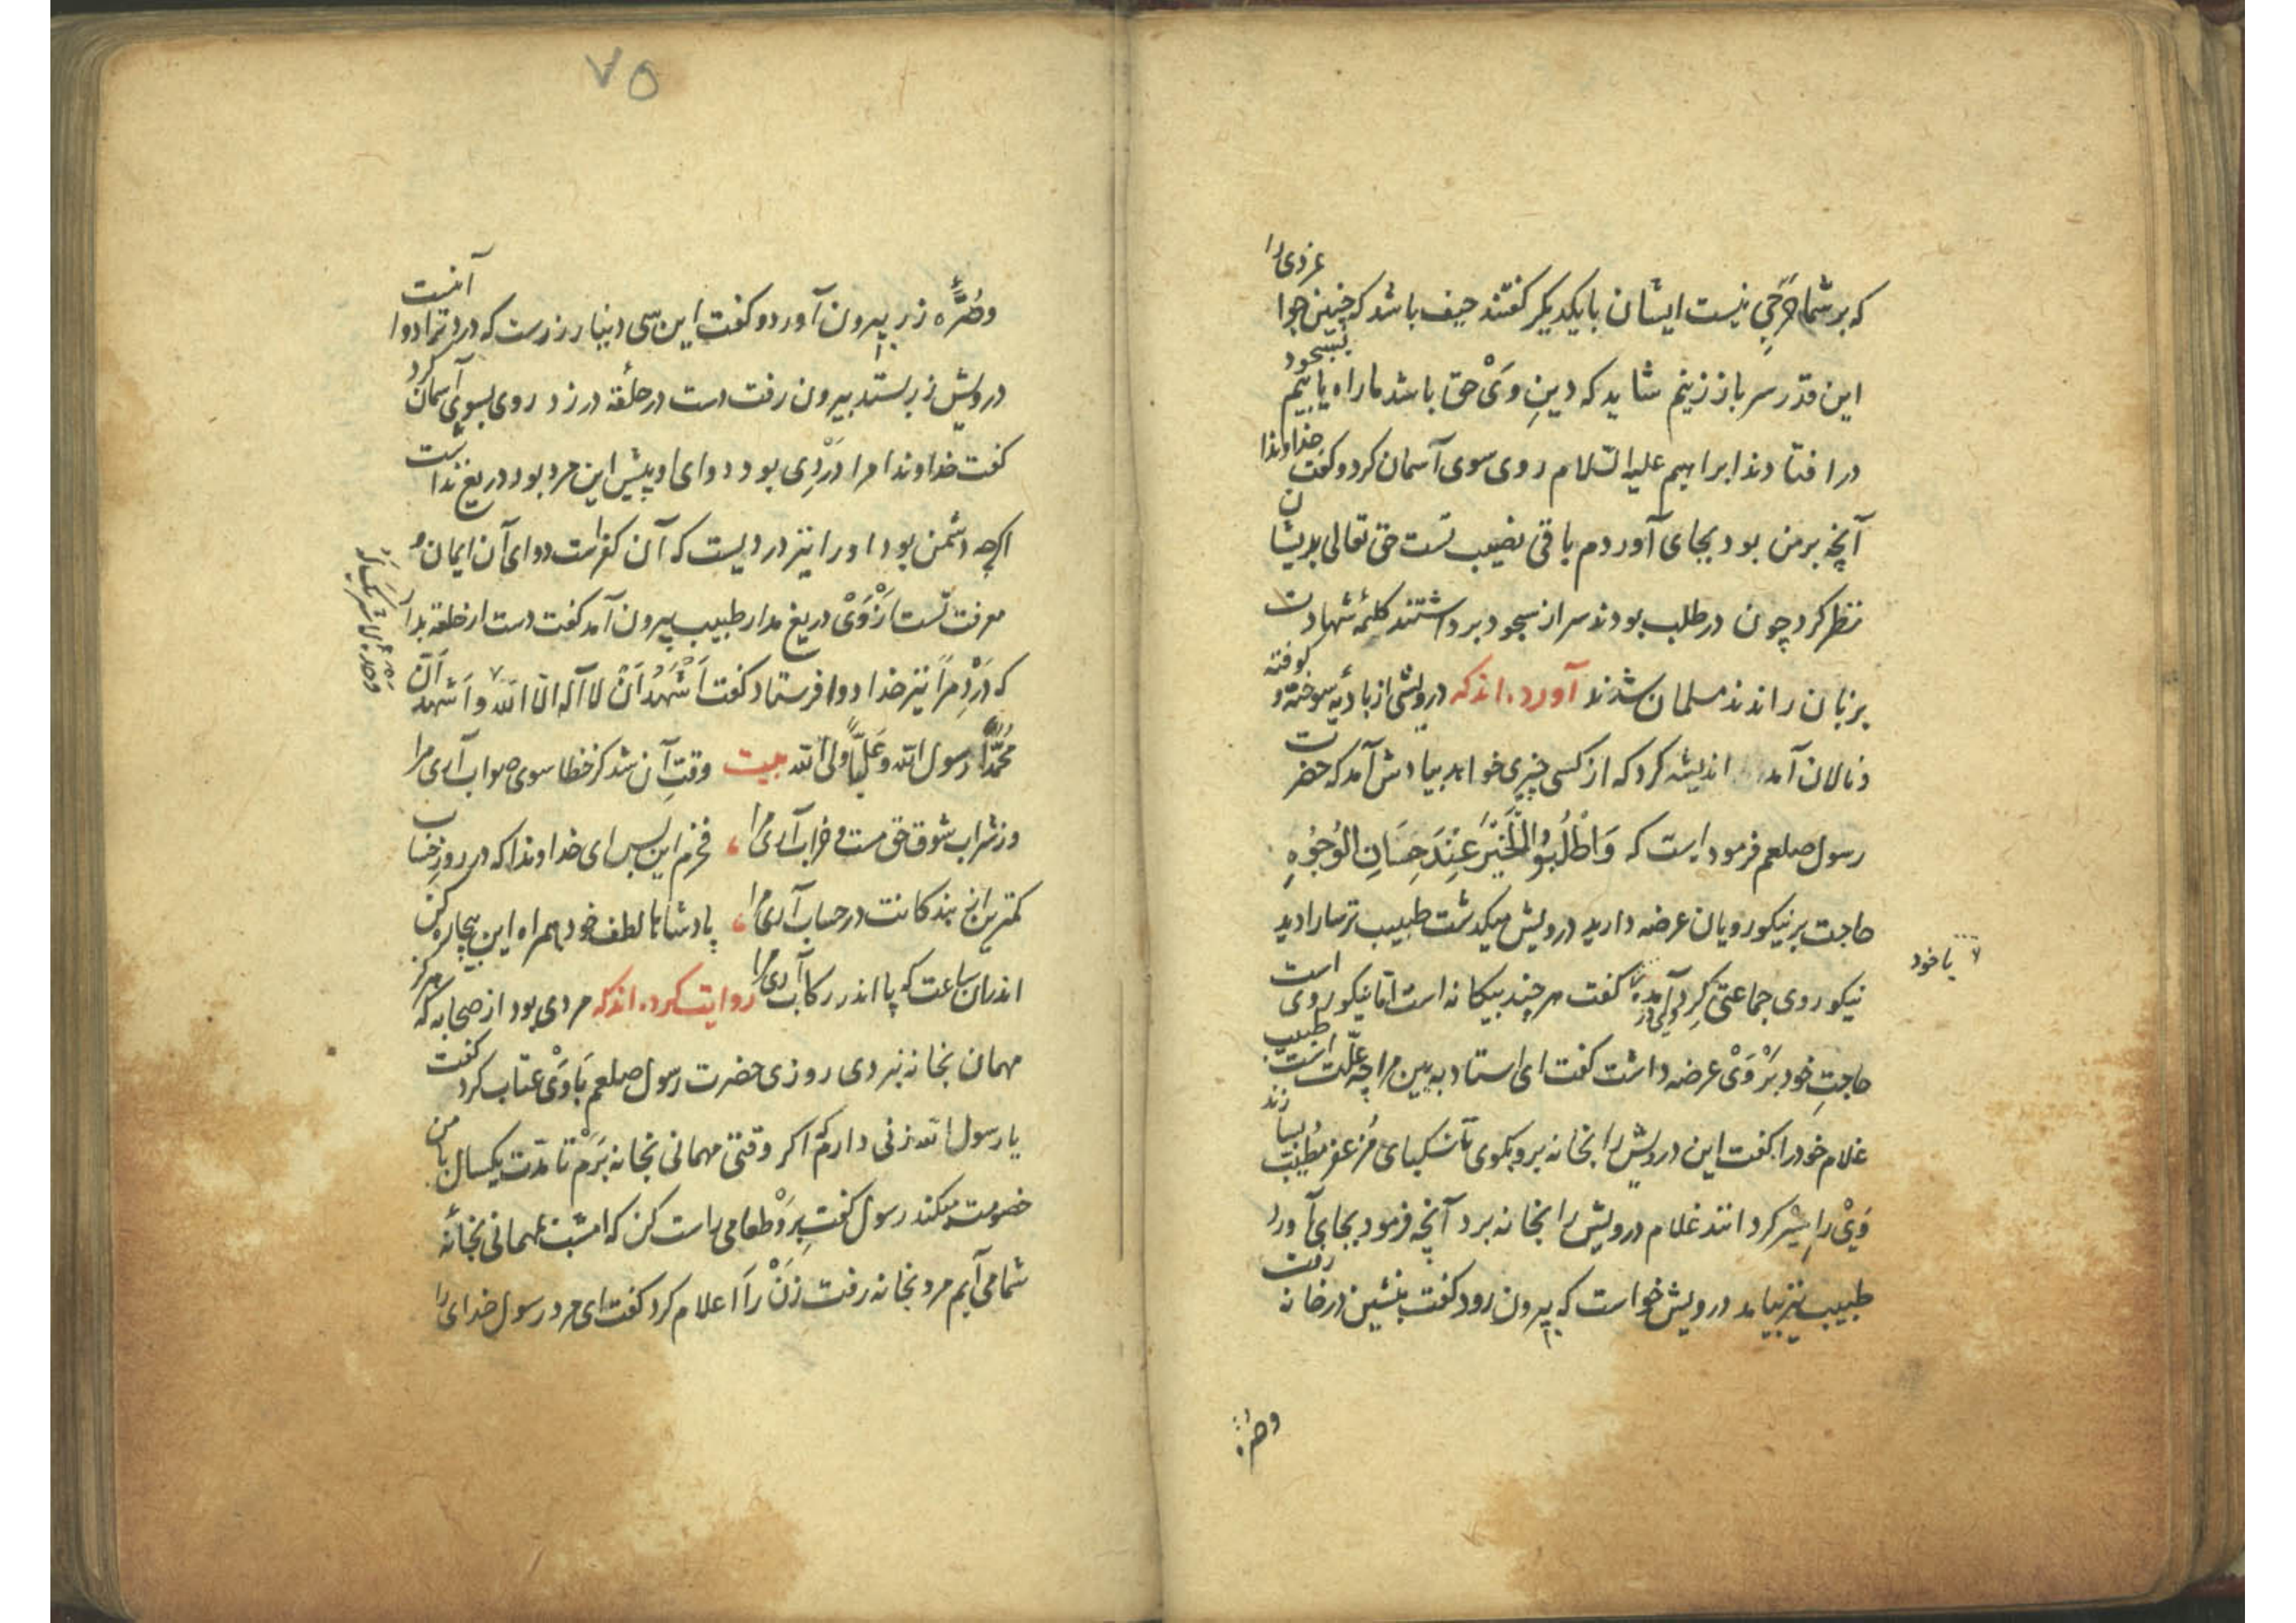 که بر شما حَرَجی نیست ایشان با یکدیگر گفتند حیف باشد که چنین جوانمردی را
این قدر سر باز زنیم شاید که دینِ وَیْ حق باشد ما راه یابیم بسجود
در افتادند ابراهیم علیه السلام روی سوی آسمان کرد و گفت خداوندا
آنچه بر من بود بجای آوردم باقی نصیب تست حق تعالی بدیشان
نظر کرد چون در طلب بودند سر از سجود برداشتند کلمۀ شهادت
بر زبان راندند مسلمان شدند آورده‌اند که درویشی از بادیه سوخته و کوفته
و نالان آمد اندیشه کرد که از کسی چیزی خواهد بیادش آمد که حضرت
رسول صلعم فرموده است که وَاطْلُبُوا الْخَیْرَ عِنْدَ حِسَانِ الْوُجُوْهِ
حاجت بر نیکورویان عرضه دارید درویش میگذشت طبیب ترسا را دید
نیکوروی جماعتی گِرد وی در آمده گفت هر چند بیگانه است اما نیکوروی است
با خود
حاجتِ خود بَرْ وَیْ عرضه داشت گفت ای استاد به بین مرا چه علّت است طبیب
غلام خود را گفت این درویش را بخانه بر و بگوی تا سکبای مُزَعفر مُطیّب بسازند
وَیْ را سیر گردانند غلام درویش را بخانه برد آنچه فرمود بجای آورد
طبیب نیز بیامد درویش خواست که بیرون رود گفت بنشین در خانه رفت
وصره
۷۵
وصُرَّۀ زر بیرون آورد و گفت این سی دینار زرست که درد ترا دوا آنست
درویش زر بستد بیرون رفت دست در حلقه در زد روی بسوی آسمان کرد
گفت خداوندا مرا دَرْدِی بود دوای او پیش این مرد بود دریغ نداشت
اگرچه دشمن بود او را نیز دردیست که آن کفر است دوای آن ایمان و
معرفت تست اَزْ وَیْ دریغ مدار طبیب بیرون آمد گفت دست از حلقه بدار
که دَرْدِ مَرا نیز خدا دوا فرستاد گفت اَشْهَدُ اَنْ لا آله الّا اللّه و اَشْهَد اَنّ
وحده لا شریک له
مُحَمَّداً رسول الله و عَلِیّاً ولی الله بیت وقتِ آن شد کز خطا سوی صواب آری مرا
وز شراب شوق حق مست و خراب آری مرا فخرم این بس ای خداوندا که در روز حساب
کمترین از بندگانت در حساب آری مرا پادشاها لطف خود همراه این بیچاره کن
اندران ساعت که پا اندر رکاب آری مرا روایت کرده‌اند که مردی بود از صحابه که هرگز
مهمان بخانه نبردی روزی حضرت رسول صلعم بَا وَیْ عتاب کرد گفت
یا رسول الله زنی دارم که اگر وقتی مهمانی بخانه بَرَم تا مدّت یکسال با من
خصومت میکند رسول گفت بِرَوْ طعامی راست کن که امشب بمهمانی بخانۀ
شما می‌آیم مرد بخانه رفت زَنْ رَا اعلام کرد گفت ای مرد رسول خدای را